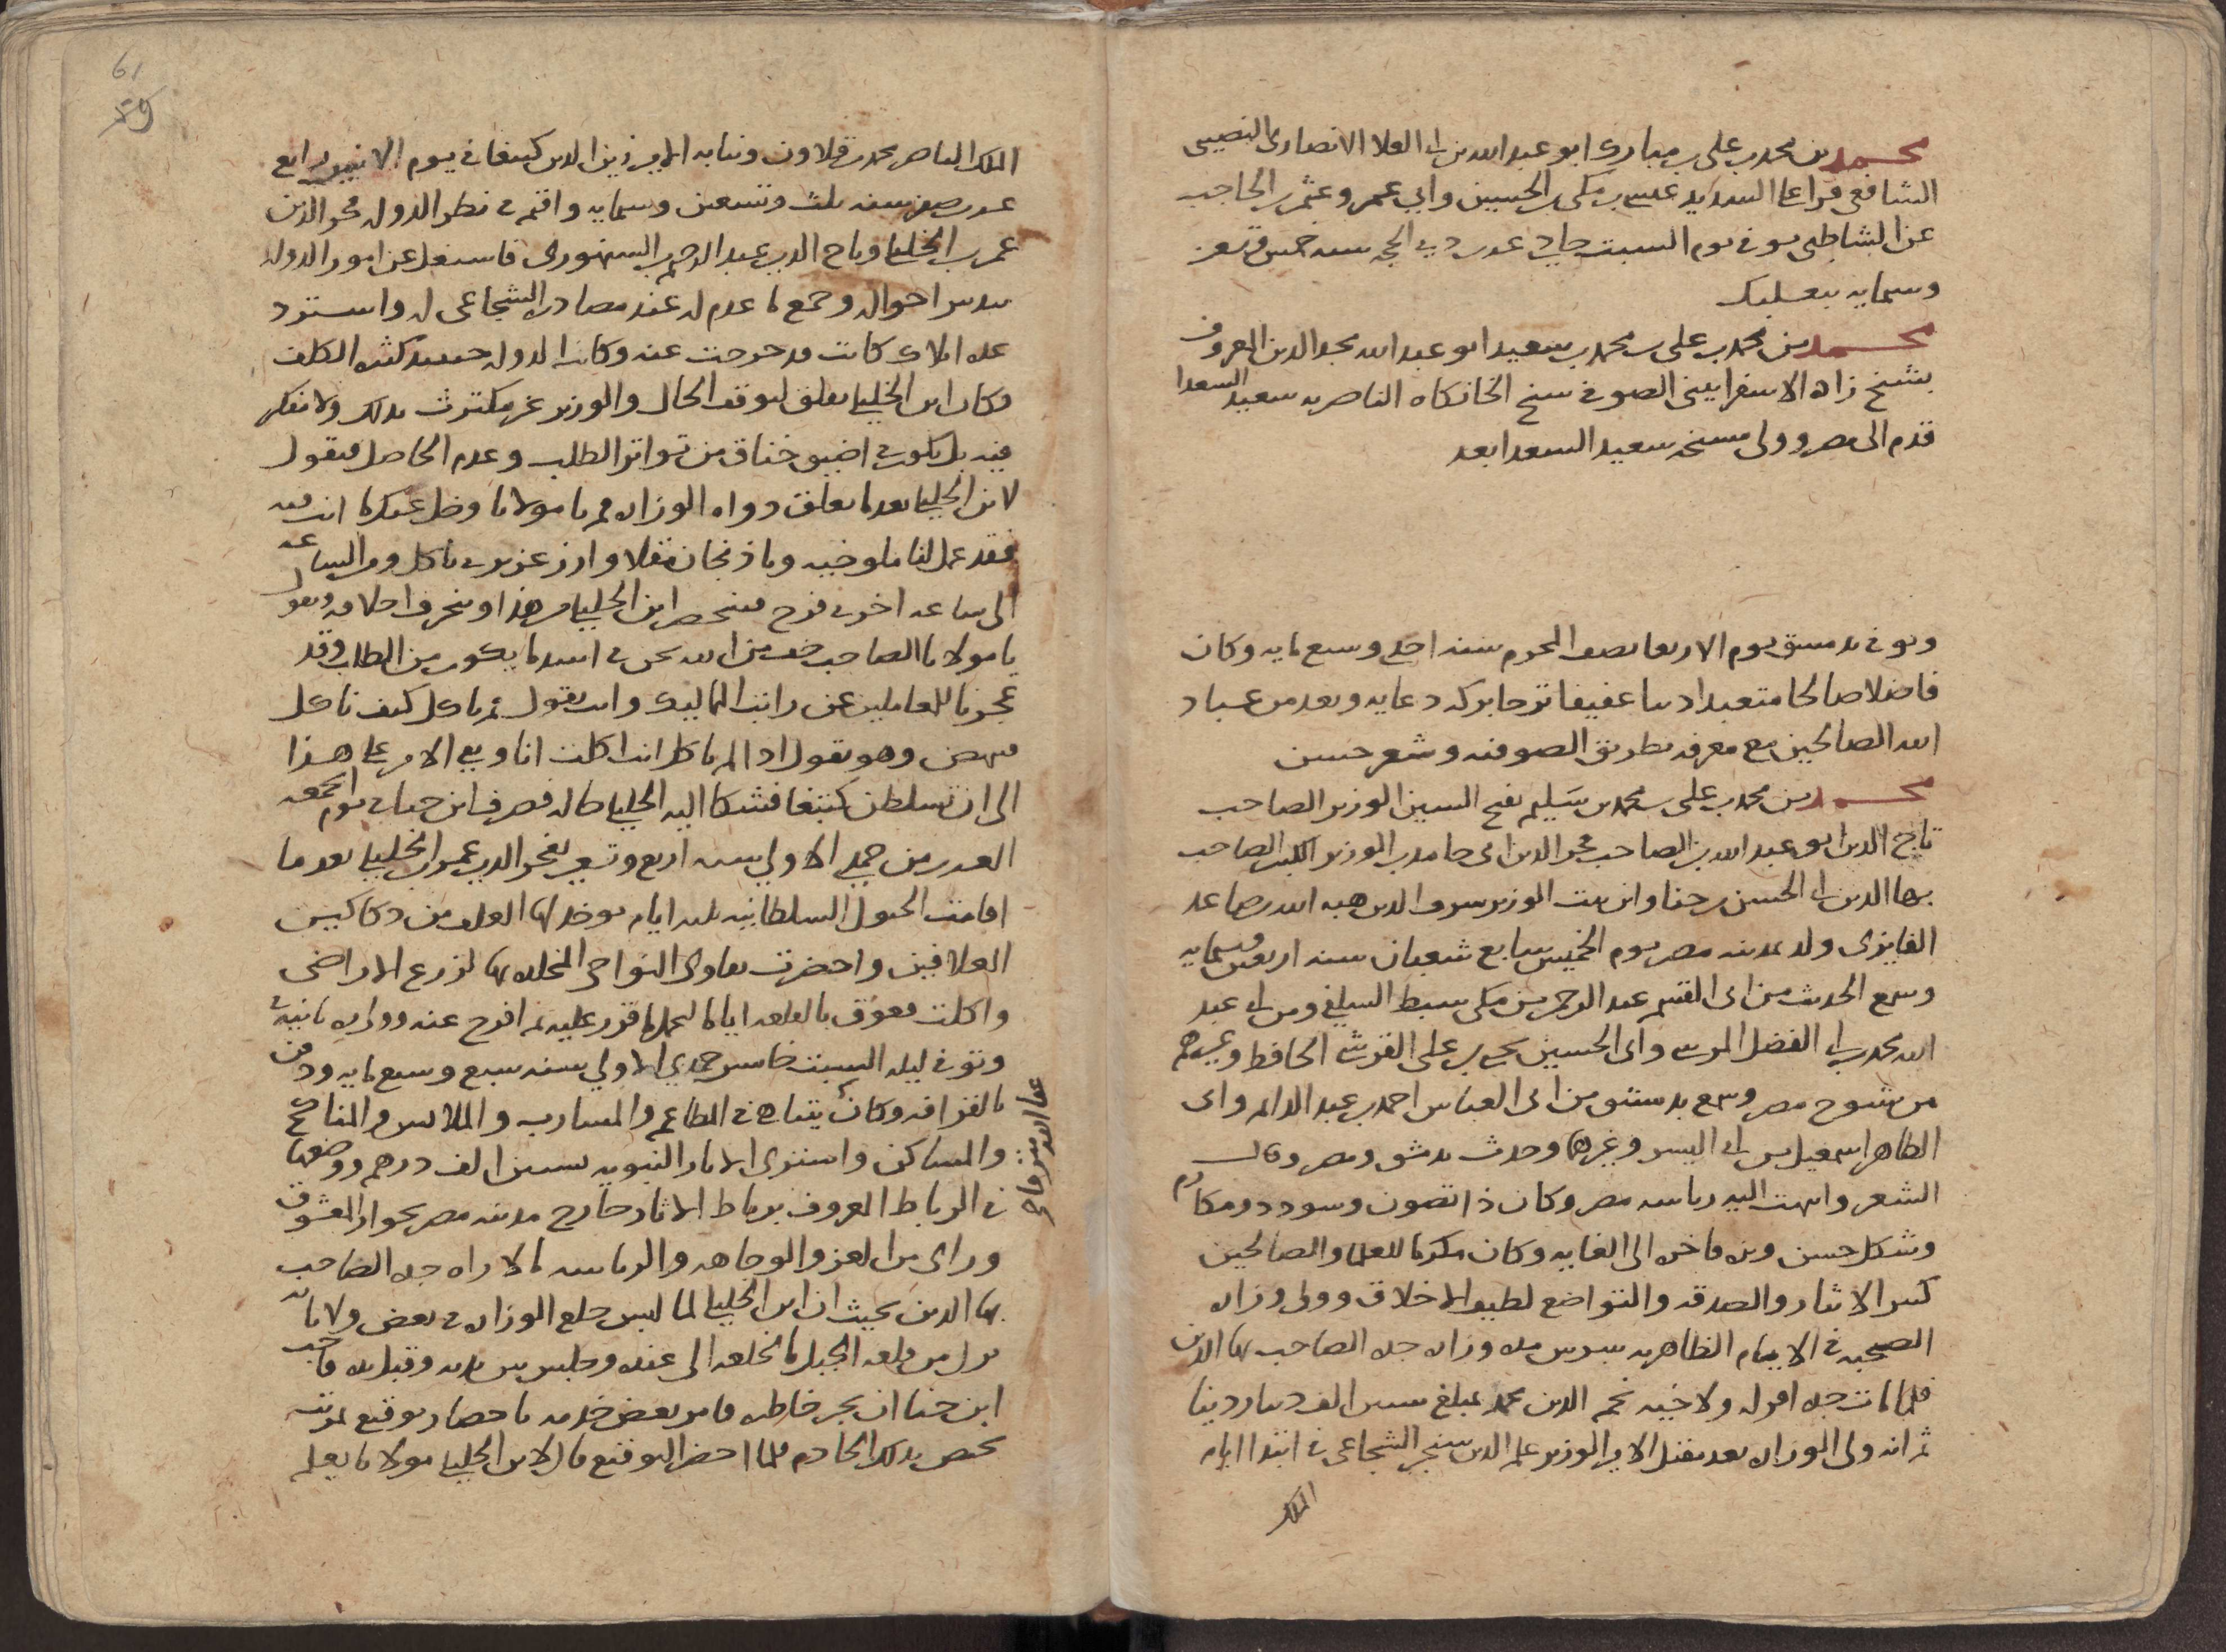 محمد بن محمد بن علي بن مبارك ابو عبد الله بن ابي العلا الانصاري النصيبي
الشافعي قرا على السديد عيسى بن مكي بن الحسين وابي عمرو عثمن بن الحاجب
عن الشاطبي توفي يوم السبت حادي عشر ذي الحجه سنه خمس وتسعين
وستمايه ببعلبك
محمد بن محمد بن علي بن محمد بن سعيد ابو عبد الله مجد الدين المعروف
بشيخ زاده الاسفرايني الصوفي شيخ الخانكاه الناصريه سعيد السعدا
قدم الى مصر وولي مشيخه سعيد السعدا بعد
وتوفي بدمشق يوم الاربعا نصف المحرم سنه احدي وسبع مايه وكان
فاضلا صالحا متعبدا دينا عفيفا ترجا بركه دعايه ويعد من عباد
الله الصالحين مع معرفه بطريق الصوفيه وشعر حسن
محمد بن محمد بن علي بن محمد بن سليم بفتح السين الوزير الصاحب
تاج الدين ابو عبد الله بن الصاحب فخر الدين ابي حامد بن الوزير الكبير الصاحب
بها الدين ابي الحسن بن حنا وابن بنت الوزير شرف الدين هبه الله بن صاعد
الفايزي ولد بمدينه مصر يوم الخميس سابع شعبان سنه اربعين وستمايه
وسمع الحديث من ابي القسم عبد الرحمن بن مكي سبط السلفي ومن ابي عبد
الله محمد بن ابي الفضل المرسي وابي الحسين يحيى بن علي القرشي الحافظ وغيرهم
من شيوخ مصر وسمع بدمشق من ابي العباس احمد بن عبد الدايم وابن
الطاهر اسمعيل بن ابي اليسر وغيرهما وحدث بدمشق ومصر وقال
الشعر وانتهت اليه رياسه مصر وكان ذا تصون وسودد ومكارم
وشكل حسن وبزه فاخره الى الغايه وكان مكرما للعلما والصالحين
كثير الايثار والصدقه والتواضع لطيف الاخلاق وولي وزاره
الصحبه في الايام الظاهريه بيبرس مده وزاره جده الصاحب بها الدين
فلما مات جده افرد ولاخيه نجم الدين محمد بمبلغ ستين الف دينار دينا
ثم انه ولي الوزاره بعد مقتل الامير الوزير علم الدين سنجر الشجاعي في ابتدا ايام
الملك
61
59
الملك الناصر محمد بن قلاون ونيابه الامير زين الدين كتبغا في يوم الاثنين رابع
عشر صفر سنه ثلث وتسعين وستمايه واقيم في نظر الدوله فخر الدين
عمر بن الخليلي وتاج الدين عبد الرحيم بن السنهوري فاشتغل عن امور الدوله
بتدبير احواله وجمع ما عدم له عند مصادره الشجاعي له واسترد
عده املاك كانت قد خرجت عنه وكانت الدوله حينيذ كثيره الكلف
وكان ابن الخليلي يقلق لتوقف الحال والوزير غير مكترث بذلك ولا مفكر
فيه بل يكون في اضيق خناق من تواتر الطلب وعدم الحاصل فيقول
لابن الخليلي بعد ما يغلق دواه الوزاره قم يا مولانا وخل عنك ما انت فيه
فقد عمل لنا ملوخيه وباذنجان مقلا وارز عزيزي ناكل ومن الساعه
الى ساعه اخرى فرج فينحصر ابن الخليلي من هذا وتنحرف اخلاقه ويقول
يا مولانا الصاحب خف من الله نحن في اشد ما يكون من الطلب وقد
عجزنا للعاملين عن راتب المماليك وانت تقول قم ناكل كيف ناكل
فينهض وهو يقول اذا لم تاكل انت اكلت انا وبقي الامر على هذا
الى ان تسلطن كتبغا فشكا اليه الخليلي حاله فصرف ابن حنا في يوم الجمعه
العشرين من جمدي الاولي سنه اربع وتسعين بفخر الدين عمر بن الخليلي بعد ما
اقامت الخيول السلطانيه ثلثه ايام يوخذ لها العلف من دكاكين
العلافين واحضرت تقاوي النواحي المخلده بها لزرع الاراضي
واكلت فعوق بالقلعه اياما ليحمل ما قرر عليه ثم افرج عنه وولي ثانيه
وتوفي ليله السبت خامس جمدي الاولي سنه سبع وسبع مايه ودفن
بالقرافه وكان يتناهي في المطاعم والمشارب والملابس والمناكح
والمساكن واشتري الاثار النبويه بستين الف درهم ووضعها
في الرباط المعروف برباط الاثار خارج مدينه مصر بجوار المعشوق
وراى من العز والوجاهه والرياسه ما لا راه جده الصاحب
بها الدين بحيث ان ابن الخليلي لما لبس خلع الوزاره في بعض ولاياته
نزل من قلعه الجبل بالخلعه الى عنده وجلس بين يديه وقبل يده فاحب
ابن حنا ان يجبر خاطره فامر بعض خدمه باحضار توقيع مرتب
يختص بذلك الخادم فلما احضر التوقيع قال لابن الخليلي مولانا يعلم